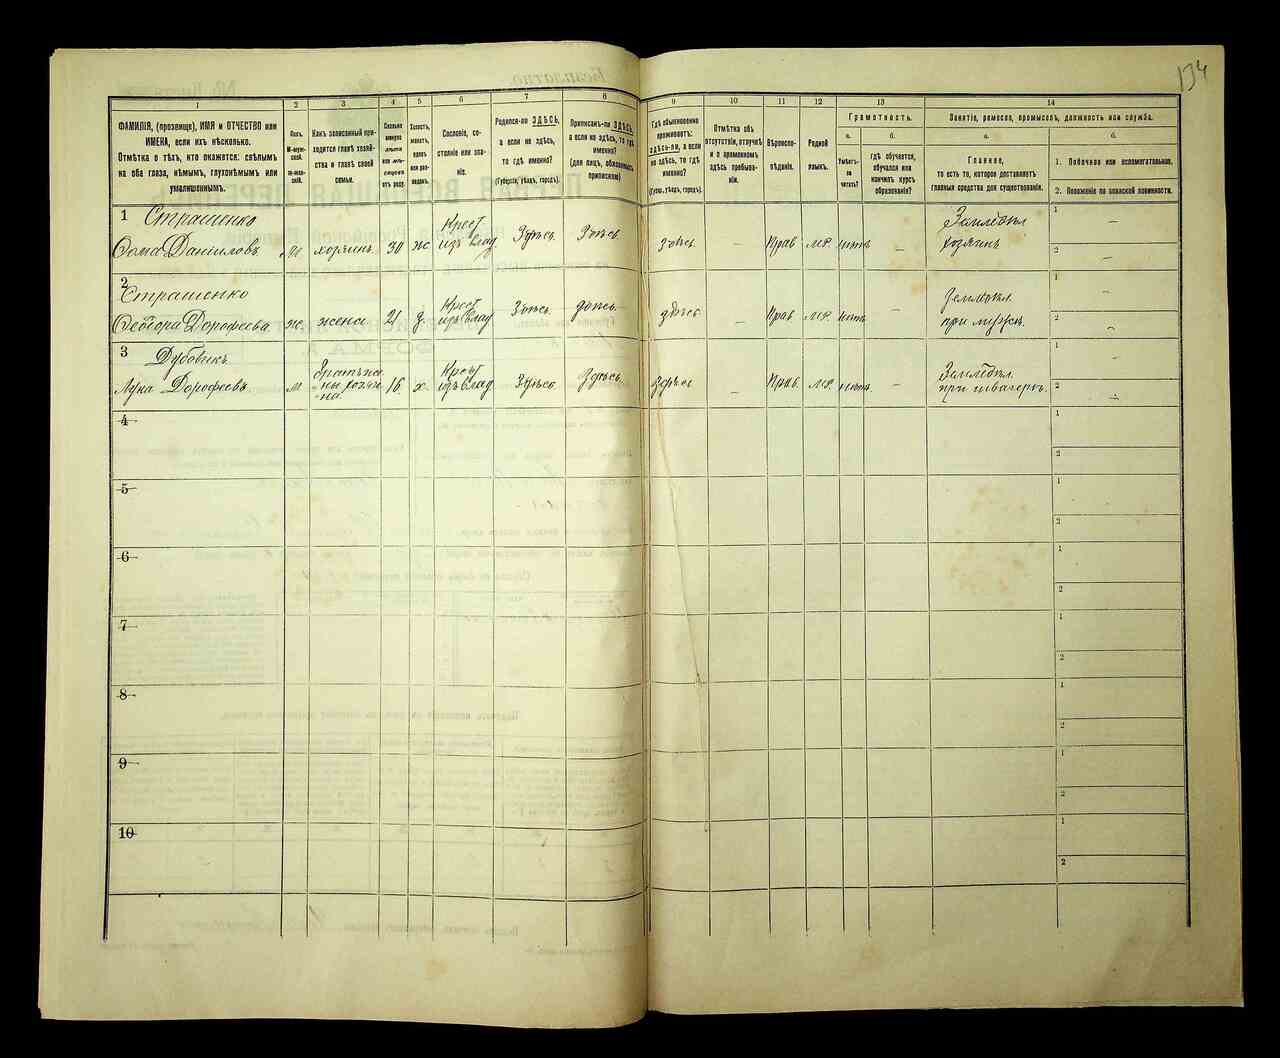 134
1
2
3
4
5
6
7
8
9
10
11
12
13
14
ФАМИЛІЯ, (прозвище), ИМЯ и ОТЧЕСТВО или
ИМЕНА, если ихъ нѣсколько.
Отмѣтка о тѣхъ, кто окажется: слѣпымъ
на оба глаза, нѣмымъ, глухонѣмымъ или
умалишеннымъ.
Полъ.
М-муж-
ской.
Ж-жен-
скій.
Какъ записанный при-
ходится главѣ хозяй-
ства и главѣ своей
семьи.
Сколько
минуло
лѣтъ
или мѣ-
сяцевъ
отъ роду.
Холостъ,
женатъ,
вдовъ
или раз-
веденъ.
Сословіе, со-
стояніе или зва-
ніе.
Родился-ли ЗДѢСЬ,
а если не здѣсь,
то гдѣ именно?
(Губернія, уѣздъ, городъ).
Приписанъ-ли ЗДѢСЬ,
а если не здѣсь, то гдѣ
именно?
(для лицъ, обязанныхъ
припискою)
Гдѣ обыкновенно
проживаетъ:
здѣсь-ли, а если
не здѣсь, то гдѣ
именно?
(Губер., уѣздъ, городъ).
Отмѣтка объ
отсутствіи, отлучкѣ
и о временномъ
здѣсь пребыва-
ніи.
Вѣроиспо-
вѣданіе.
Родной
языкъ.
Грамотность.
а.
б.
Умѣетъ-
ли
читать?
гдѣ обучается,
обучался или
кончилъ курсъ
образованія?
Занятіе, ремесло, промыселъ, должность или служба.
а.
б.
Главное,
то есть то, которое доставляетъ
главныя средства для существованія.
1. Побочное или вспомогательное.
2. Положеніе по воинской повинности.
1 Страшенко
Ѳома Даниловъ м хозяинъ 30 ж Крест изъ влад Здѣсь Здѣсь здѣсь — Прав м.р. нѣтъ — Землѣдѣл хозяинъ 1 — 2 —
2
Страшенко
Ѳеодора Дорофеева ж. жена 21 з. Крест изъ влад Здѣсь здѣсь здѣсь — Прав м.р. нѣтъ — Землѣдѣл. при мужѣ. 1 — 2 —
3 Дубовикъ
Лука Дорофеевъ м братъ же-ны хозяи-на 16 х. Крест изъ влад Здѣсь Здѣсь здѣсь — Прав. м.р. нѣтъ. — Землѣдѣл. при швагерѣ. 1 — 2 —
4 1 2
5 1 2
6 1 2
7 1 2
8 1 2
9 1 2
10 1 2